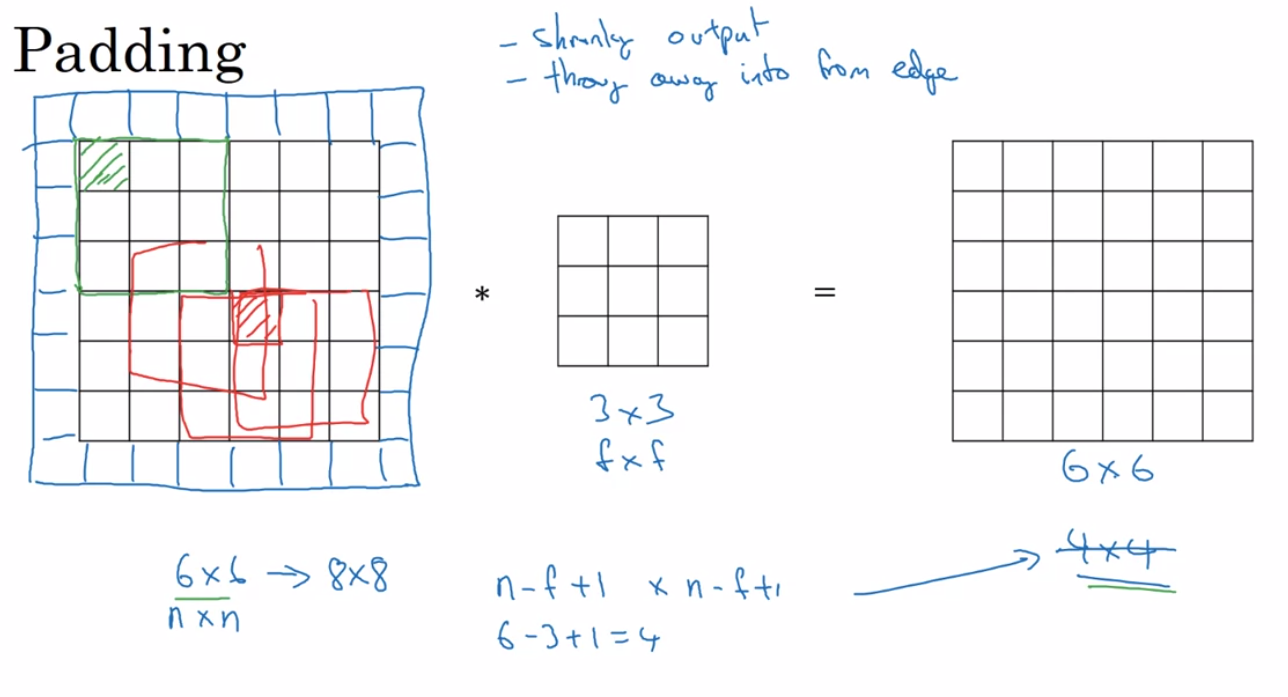 Padding
- shrinky output
- throy away into from edge
*
=
3×3
f×f
6×6
6×6 → 8×8
n×n
n-f+1 × n-f+1
6-3+1=4
4×4